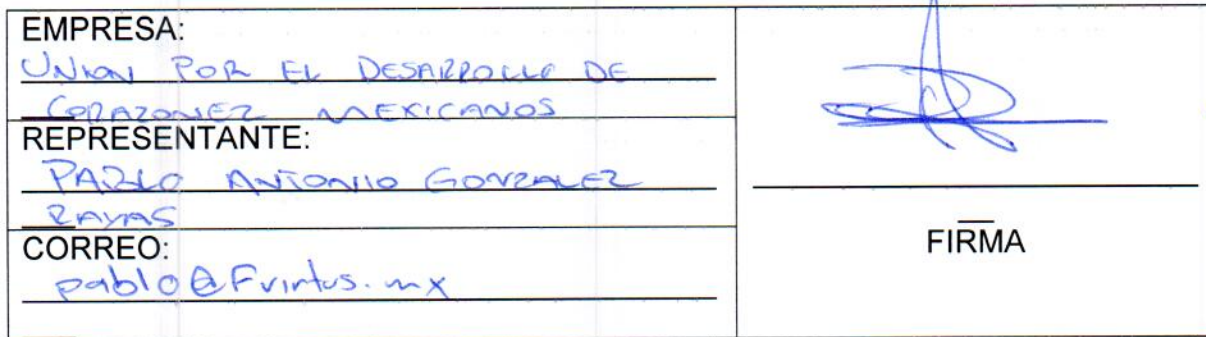 EMPRESA:
UNION POR EL DESARROLLO DE
CORAZONEZ MEXICANOS
REPRESENTANTE:
PABLO ANTONIO GONZALEZ
RAYAS
CORREO:
pablo@Fvirtus.mx
FIRMA